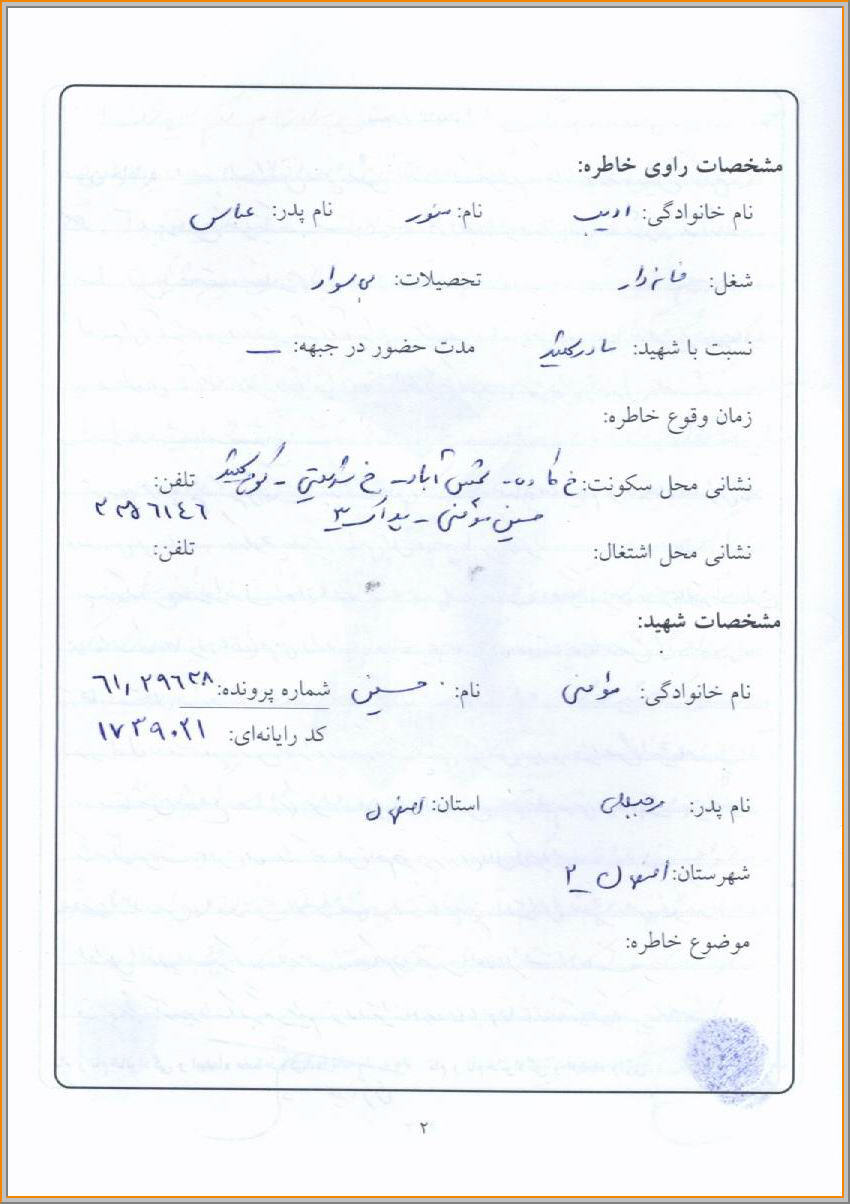 مشخصات راوی خاطره:
نام خانوادگی: ادیب نام: منور نام پدر: عباس
شغل: خانه‌دار تحصیلات: بی‌سواد
نسبت با شهید: مادر شهید مدت حضور در جبهه: —
زمان وقوع خاطره:
نشانی محل سکونت: خ کاوه - شمس آباد - خ شریعتی - کوی شهید تلفن:
حسین مؤمنی - پلاک ۳ ۲۲۵۶۱۴۶
نشانی محل اشتغال: تلفن:
مشخصات شهید:
نام خانوادگی: مؤمنی نام: حسین شماره پرونده:
کد رایانه‌ای: ۱۷۳۹۰۲۱
نام پدر: رجبعلی استان: اصفهان
شهرستان: اصفهان ۲
موضوع خاطره:
۲